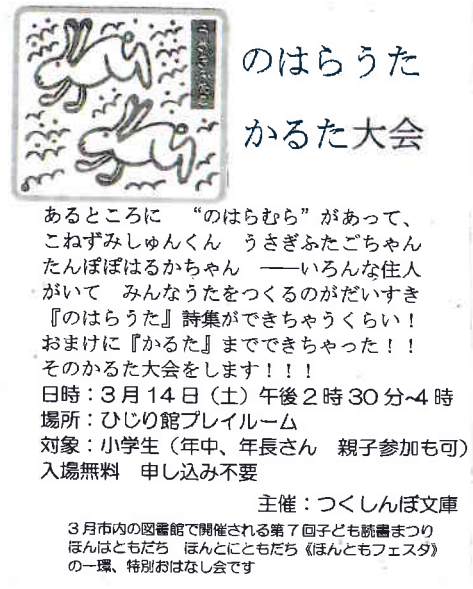 のはらうた
かるた大会
あるところに　“のはらむら”があって、
こねずみしゅんくん　うさぎふたごちゃん
たんぽぽはるかちゃん　――いろんな住人
がいて　みんなうたをつくるのがだいすき
『のはらうた』詩集ができちゃうくらい！
おまけに『かるた』までできちゃった！！
そのかるた大会をします！！！
日時：３月１４日（土）午後２時３０分~４時
場所：ひじり館プレイルーム
対象：小学生（年中、年長さん　親子参加も可）
入場無料　申し込み不要
主催：つくしんぼ文庫
３月市内の図書館で開催される第７回子ども読書まつり
ほんはともだち　ほんとにともだち《ほんともフェスタ》
の一環、特別おはなし会です